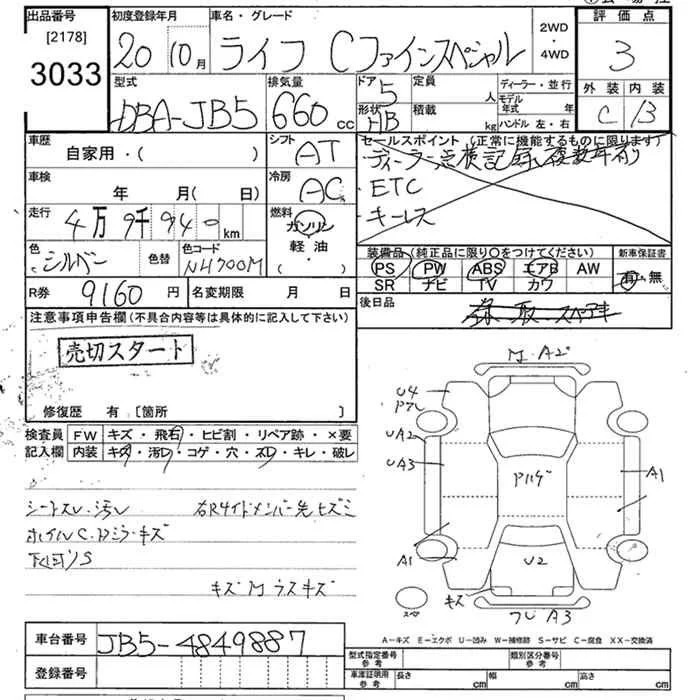 出品番号 初度登録年月 車名・グレード 2WD 評価点
[2178] 20 10月 ライフ Cファインスペシャル ・ 3
3033 4WD
型式 排気量 ドア 定員 ディーラー・並行 外装 内装
DBA-JB5 660cc 5 人 モデル年式 年 C B
形状 積載 ハンドル 左・右
HB kg
車歴 シフト セールスポイント(正常に機能するものに限ります)
自家用・( ) AT ・ディーラー点検記録 複数年有り
車検 冷房 ・ETC
年 月(日) AC ・キーレス
走行 燃料
4万 9千 940km ガソリン
色 シルバー 色替 色コード NH700M 軽油 装備品(純正品に限り○をつけてください) 新車保証書
・( ) PS PW ABS エアB AW 有・無
R券 9160円 名変期限 月 日 SR ナビ TV カワ
注意事項申告欄(不具合内容等は具体的に記入して下さい) 後日品
売切スタート
修復歴 有 [箇所 ]
検査員 FW キズ・飛石・ヒビ割・リペア跡・×要
記入欄 内装 キズ・汚レ・コゲ・穴・スレ・キレ・破レ
M A2
U4
UA2
UA3
A1
A1
U2
キズ
A3
スペ
シートスレ汚レ 右Rサイドメンバー先ヒズミ
ホイルC.Dミラーキズ
下回りS
キズM ラスキズ
車台番号 JB5-4849887
登録番号
A−キズ E−エクボ U−凹み W−補修跡 S−サビ C−腐食 XX−交換済
型式指定番号 参考 類別区分番号 参考
車庫証明用 参考 長さ cm 幅 cm 高さ cm